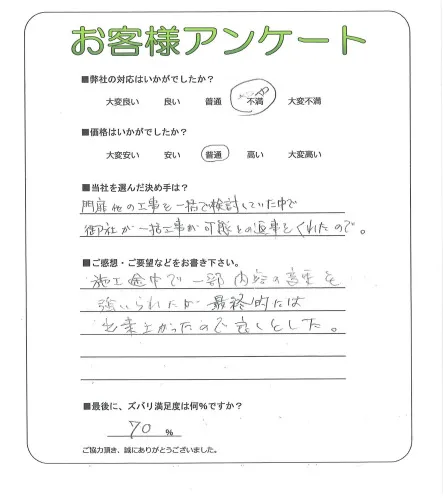 お客様アンケート
■弊社の対応はいかがでしたか?
大変良い 良い 普通 不満 大変不満
■価格はいかがでしたか?
大変安い 安い 普通 高い 大変高い
■当社を選んだ決め手は?
門扉他の工事を一括で検討していた中で
御社が一括工事が可能との返事をくれたので。
■ご感想・ご要望などをお書き下さい。
施工途中で一部内容の変更を
強いられたが最終的には
出来上がったので良しとした。
■最後に、ズバリ満足度は何%ですか?
70 %
ご協力頂き、誠にありがとうございました。